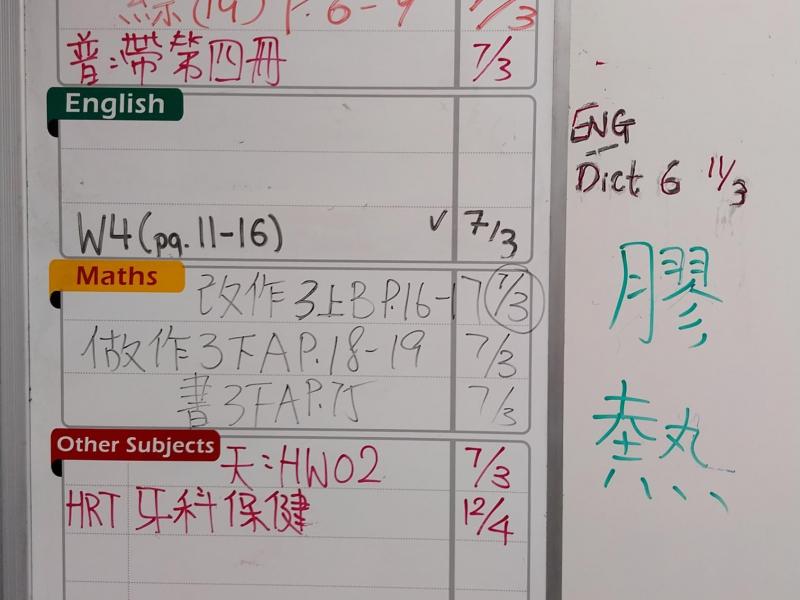 綜(19) P.6-9 7/3
普:帶第四冊 7/3
English
W4(pg.11-16) ✓ 7/3
Maths
改作3上B P.16-17 7/3
做作3下A P.18-19 7/3
書3下A P.75 7/3
Other Subjects
天:HW02 7/3
HRT 牙科保健 12/4
ENG
Dict 6 11/3
膠
熱